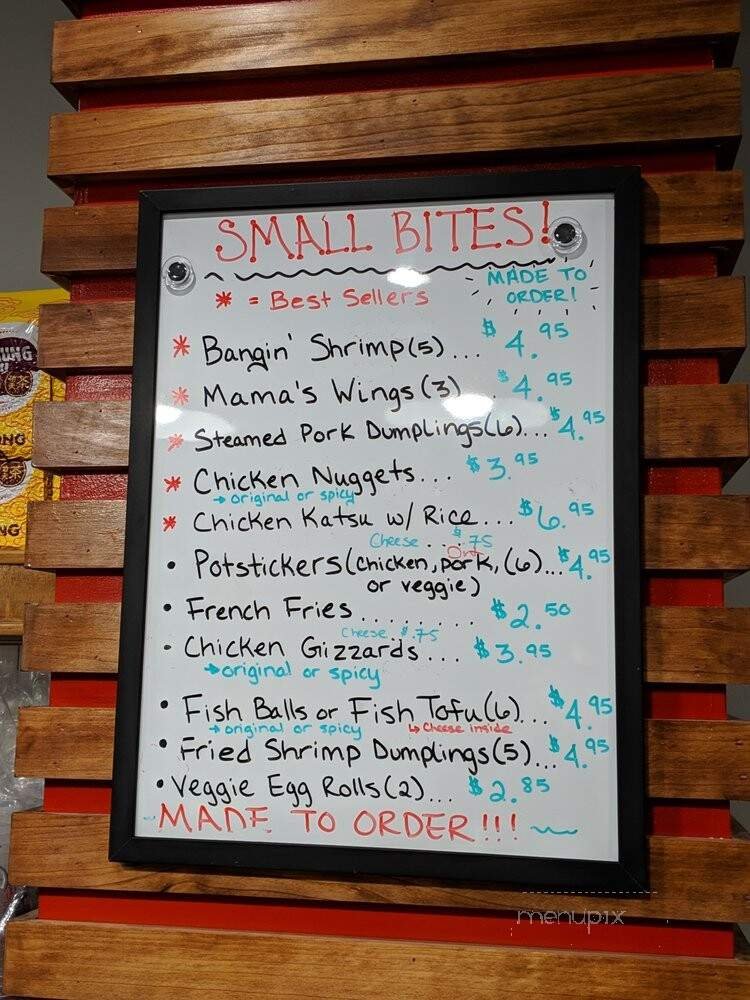 SMALL BITES!
* = Best Sellers
MADE TO
ORDER!
* Bangin' Shrimp (5)... $4.95
* Mama's Wings (3) . $4.95
* Steamed Pork Dumplings (6)... $4.95
* Chicken Nuggets... $3.95
→ original or spicy
* Chicken Katsu w/ Rice... $6.95
Cheese ... $.75
• Potstickers (chicken, pork, (6)... $4.95
or veggie)
• French Fries........ $2.50
Cheese $.75
- Chicken Gizzards... $3.95
→ original or spicy
• Fish Balls or Fish Tofu (6)... $4.95
→ original or spicy ↳ Cheese inside
• Fried Shrimp Dumplings (5)... $4.95
• Veggie Egg Rolls (2)... $2.85
MADE TO ORDER!!! ~
UNG
NG
NG
menupix